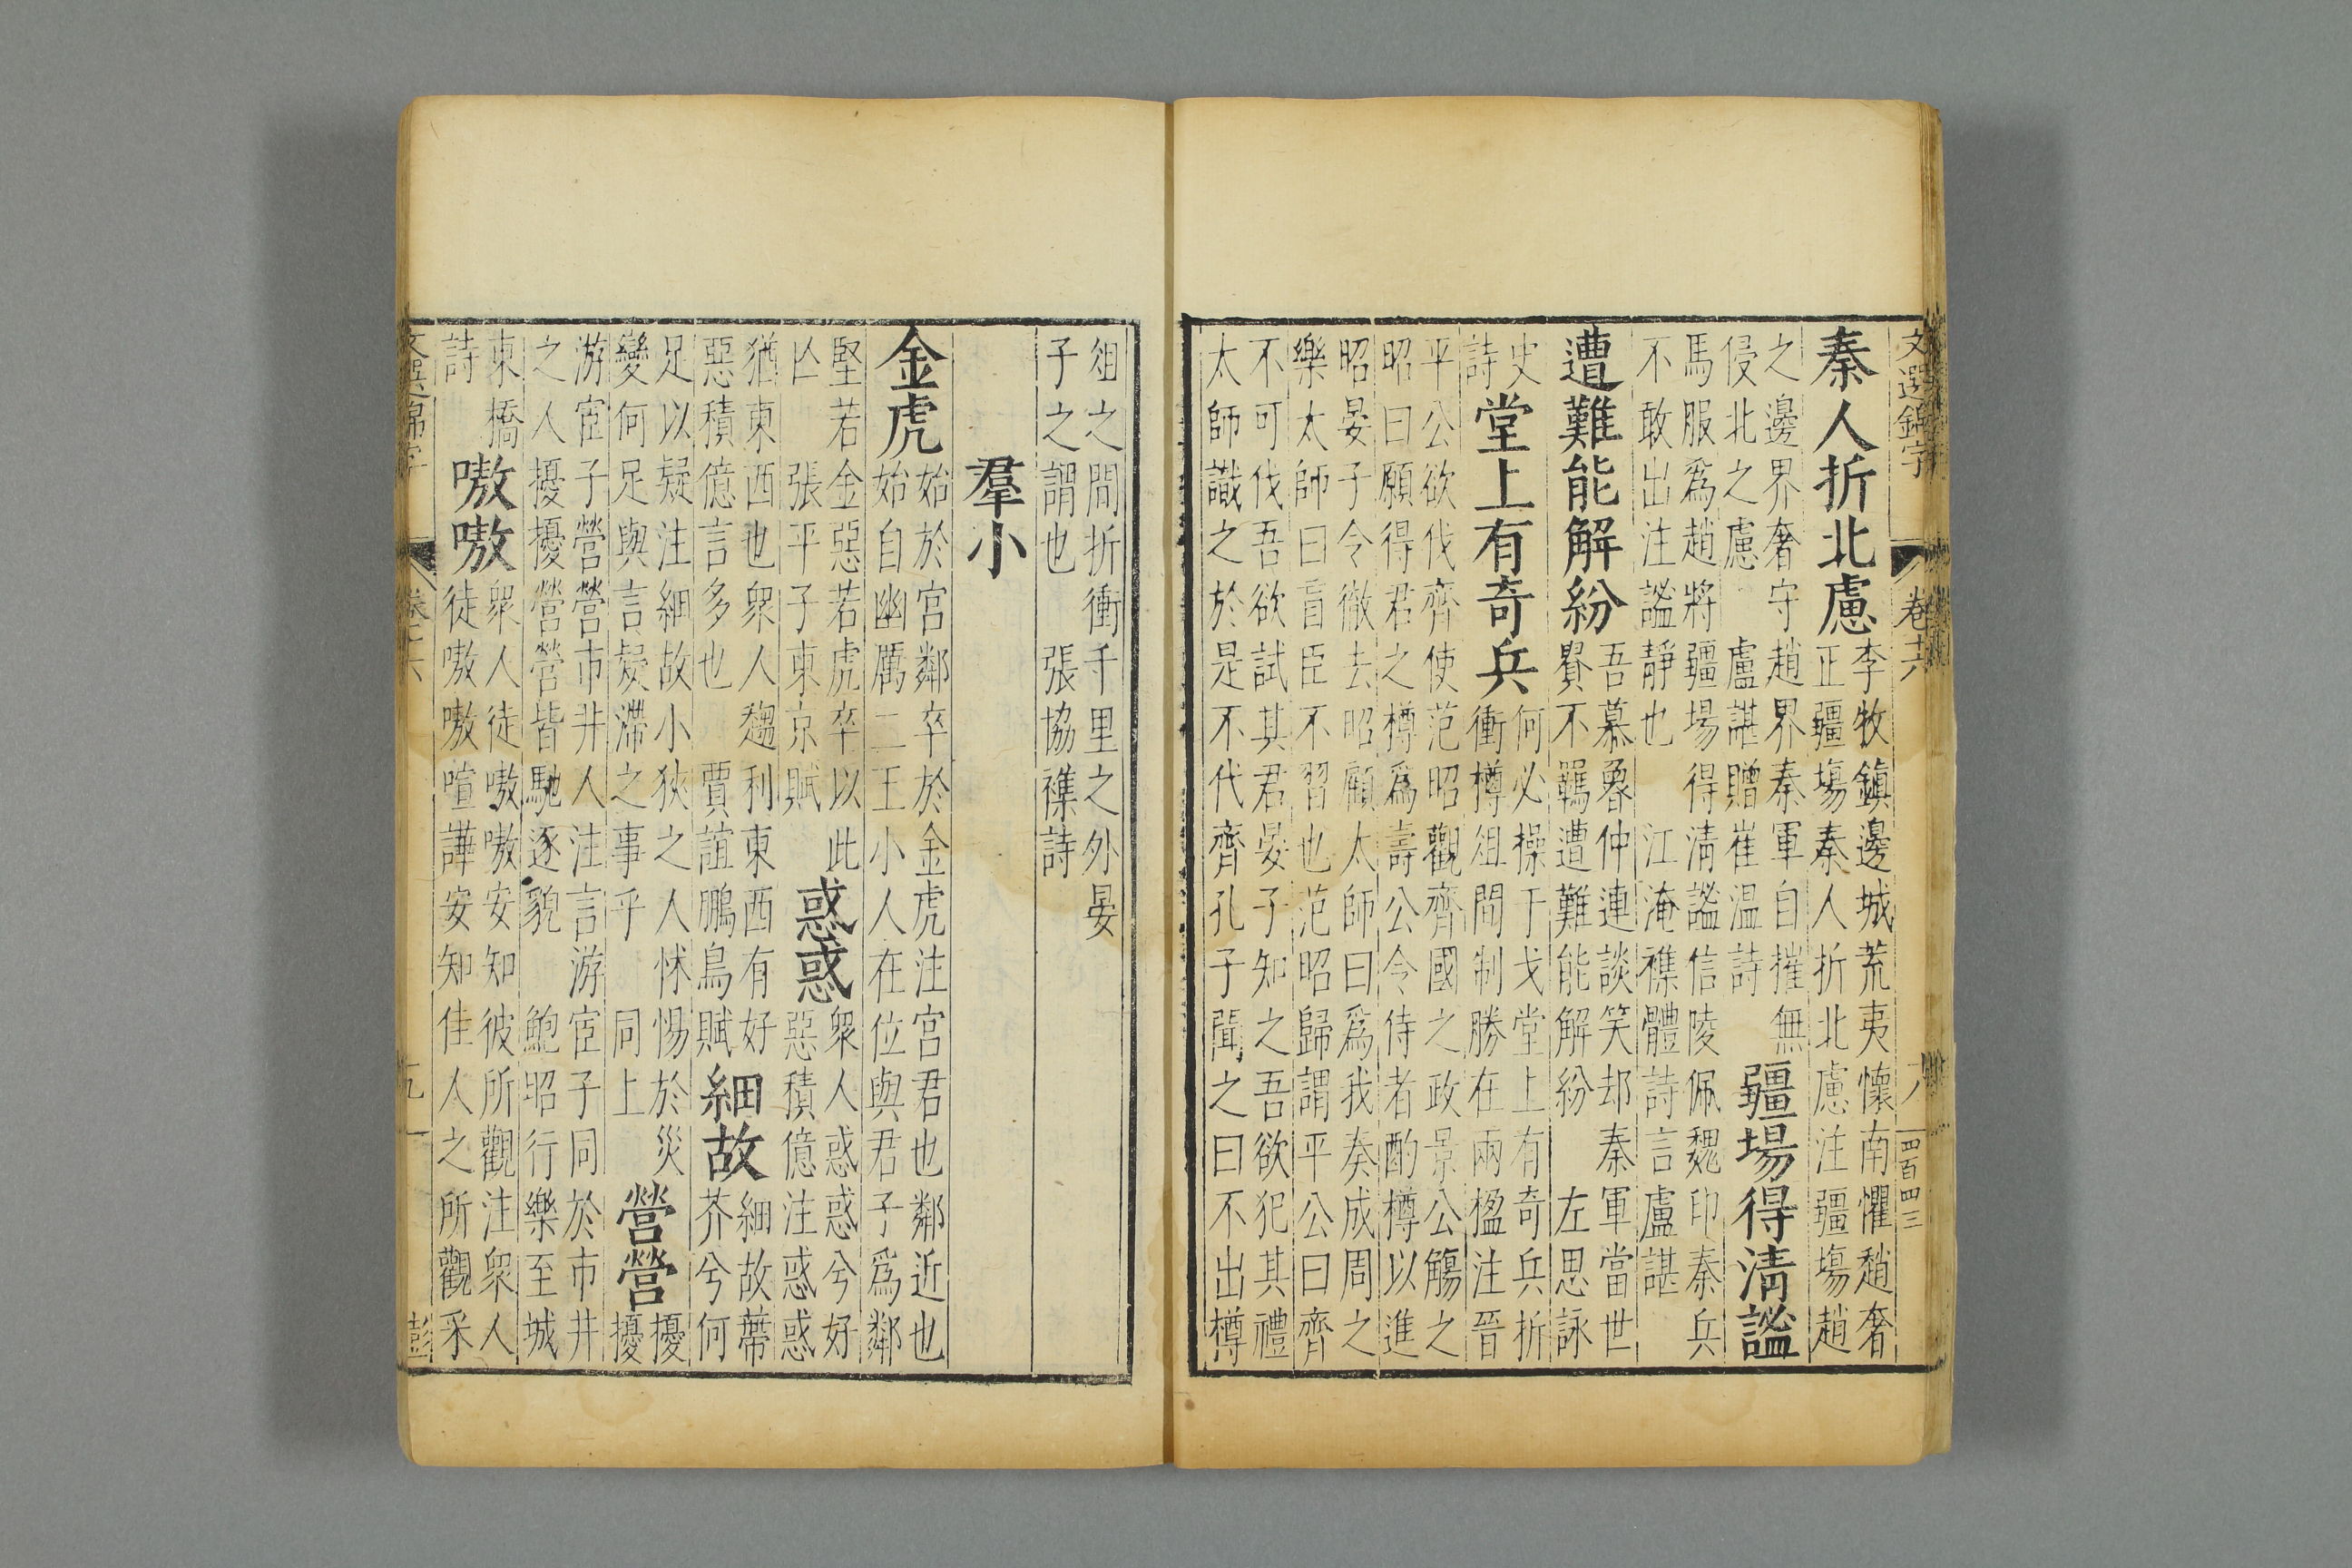 文選錦字 卷十六 八 四百四三
秦人折北慮
李牧鎮邊城荒夷懷南懼趙奢
正疆場秦人折北慮注疆場趙
之邊界奢守趙界秦軍自摧無
侵北之慮 盧諶贈崔温詩
疆場得清謐
馬服爲趙將疆場得清謐信陵佩魏印秦兵
不敢出注謐靜也 江淹襍體詩言盧諶
遭難能解紛
吾慕魯仲連談笑却秦軍當世
貴不羈遭難能解紛 左思詠
史
詩
堂上有奇兵
何必操干戈堂上有奇兵折
衝樽俎間制勝在兩楹注晉
平公欲伐齊使范昭觀齊國之政景公觴之
昭曰願得君之樽爲壽公令侍者酌樽以進
昭晏子令徹去昭顧太師曰爲我奏成周之
樂太師曰盲臣不習也范昭歸謂平公曰齊
不可伐吾欲試其君晏子知之吾欲犯其禮
太師識之於是不代齊孔子聞之曰不出樽
俎之間折衝千里之外晏
子之謂也 張協襍詩
羣小
金虎
始於宮鄰卒於金虎注宮君也鄰近也
始自幽厲二王小人在位與君子爲鄰
堅若金惡若虎卒以此
亾 張平子東京賦
惑惑
衆人惑惑兮好
惡積億注惑惑
猶東西也衆人趨利東西有好
惡積億言多也 賈誼鵩鳥賦
細故
細故蔕
芥兮何
足以疑注細故小狹之人怵惕於災
變何足與言疑滯之事乎 同上
營營
擾
擾
游宦子營營市井人注言游宦子同於市井
之人擾擾營營皆馳逐貌 鮑昭行樂至城
東橋
詩
嗷嗷
衆人徒嗷嗷安知彼所觀注衆人
徒嗷嗷喧譁安知佳人之所觀采
文選錦字 卷十六 九 彭